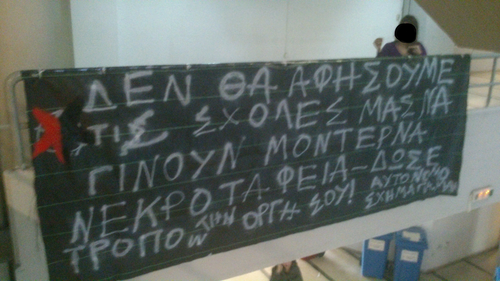 ΔΕΝ ΘΑ ΑΦΗΣΟΥΜΕ
ΤΙΣ ΣΧΟΛΕΣ ΜΑΣ ΝΑ
ΓΙΝΟΥΝ ΜΟΝΤΕΡΝΑ
ΝΕΚΡΟΤΑΦΕΙΑ-ΔΩΣΕ
ΤΡΟΠΟ ΣΤΗΝ ΟΡΓΗ ΣΟΥ!
ΑΥΤΟΝΟΜΟ
ΣΧΗΜΑ